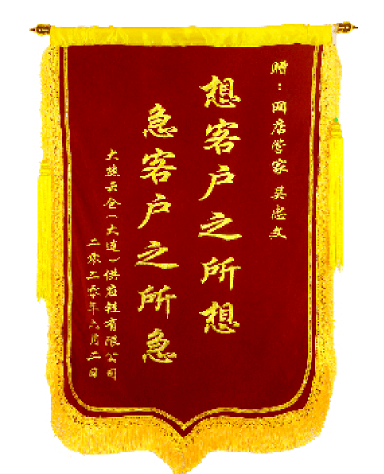 赠：网店管家 吴忠文
想客户之所想
急客户之所急
大连云仓（大连）供应链有限公司
二零二零年六月二日